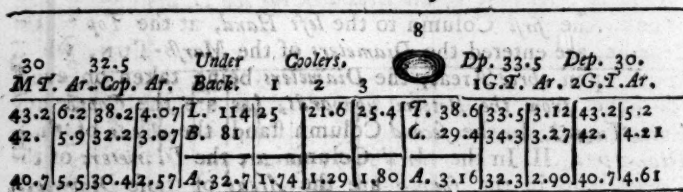 8
30 32.5 Under Coolers. Dp. 33.5 Dep. 30.
M T. Ar. Cop. Ar. Back. 1 2 3 1G.T. Ar. 2G.T. Ar.
43.2 6.2 38.2 4.07 L. 114 25 21.6 25.4 T. 38.6 33.5 3.12 43.2 5.2
42. 5.9 32.2 3.07 B. 81 C. 29.4 34.3 3.27 42. 4.21
40.7 5.5 30.4 2.57 A. 32.7 1.74 1.29 1.80 A. 3.16 32.3 2.90 40.7 4.61